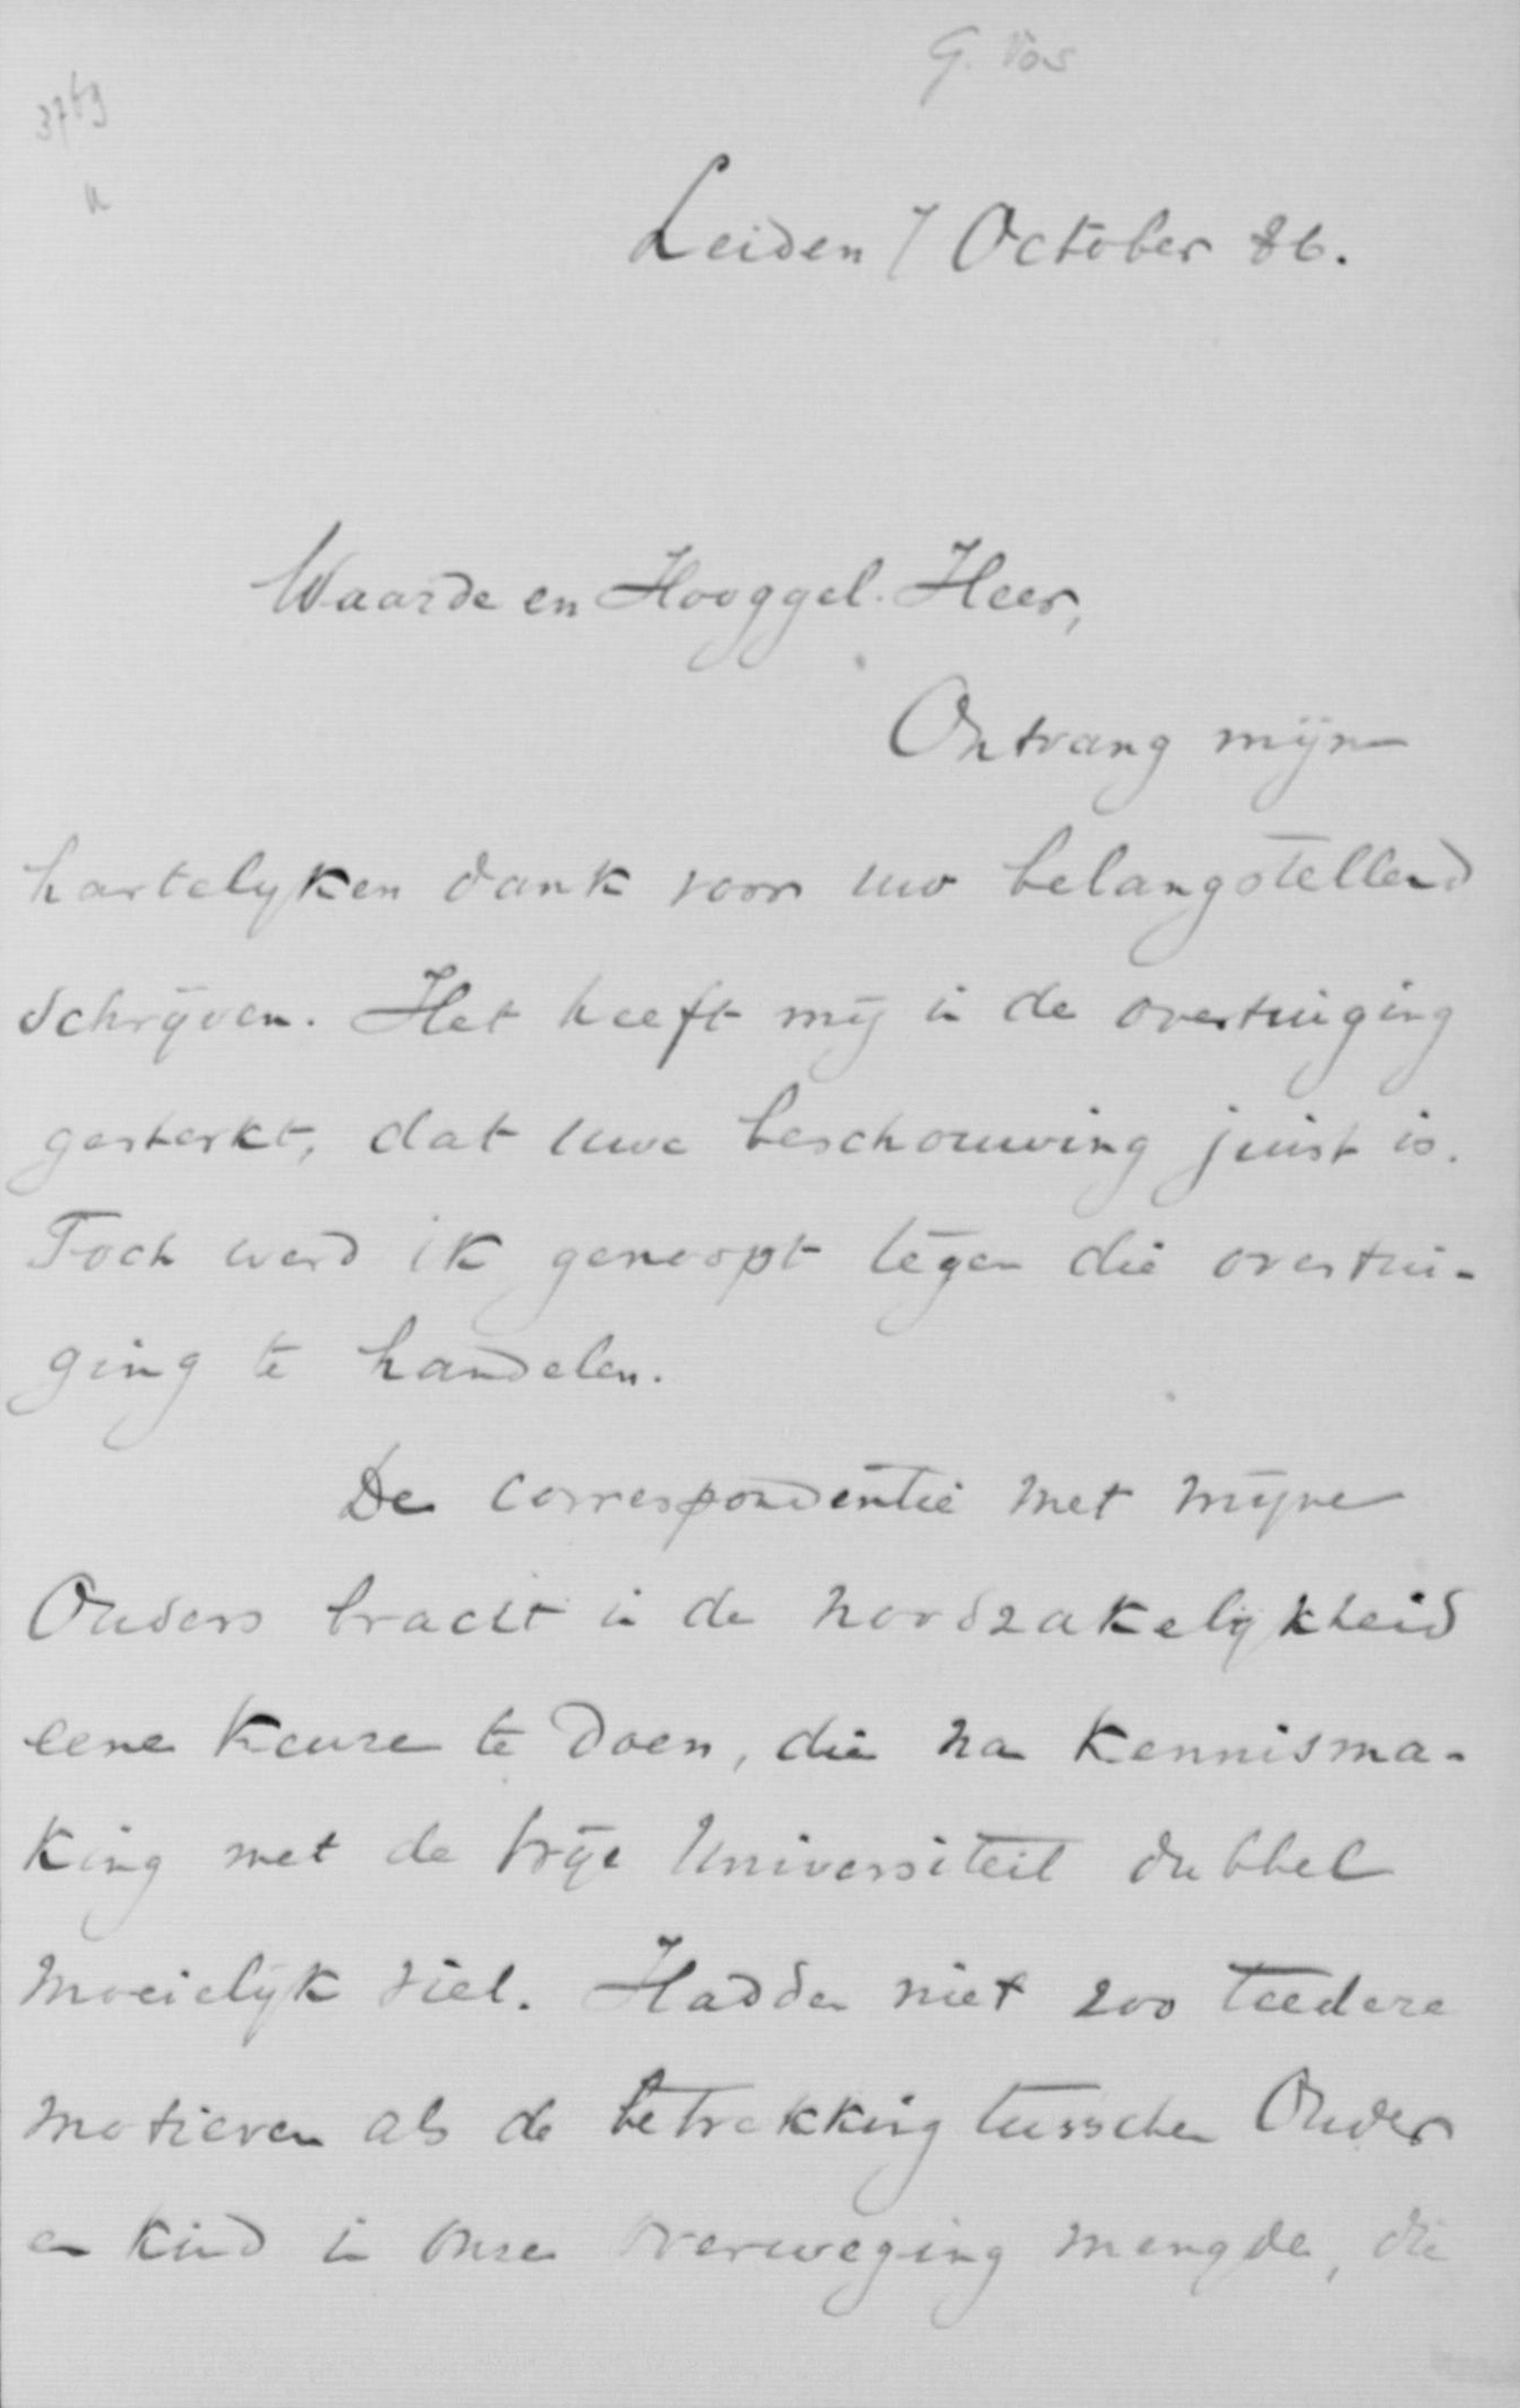 G. Vos
3769
a
Leiden 7 October 86.
Waarde en Hooggel. Heer,
Ontvang mijn
hartelyken dank voor uw belangstellend
schrijven. Het heeft mij in de overtuiging
gesterkt, dat uwe beschouwing juist is.
Toch werd ik genoopt tegen die overtui-
ging te handelen.
De correspondentie met mijne
Ouders bracht in de noodzakelijkheid
eene keuze te doen, die na kennisma-
king met de Vrije Universiteit dubbel
moeielijk viel. Hadden niet zoo teedere
motieven als de betrekking tusschen Ouder
en kind in onze overweging mengde, die